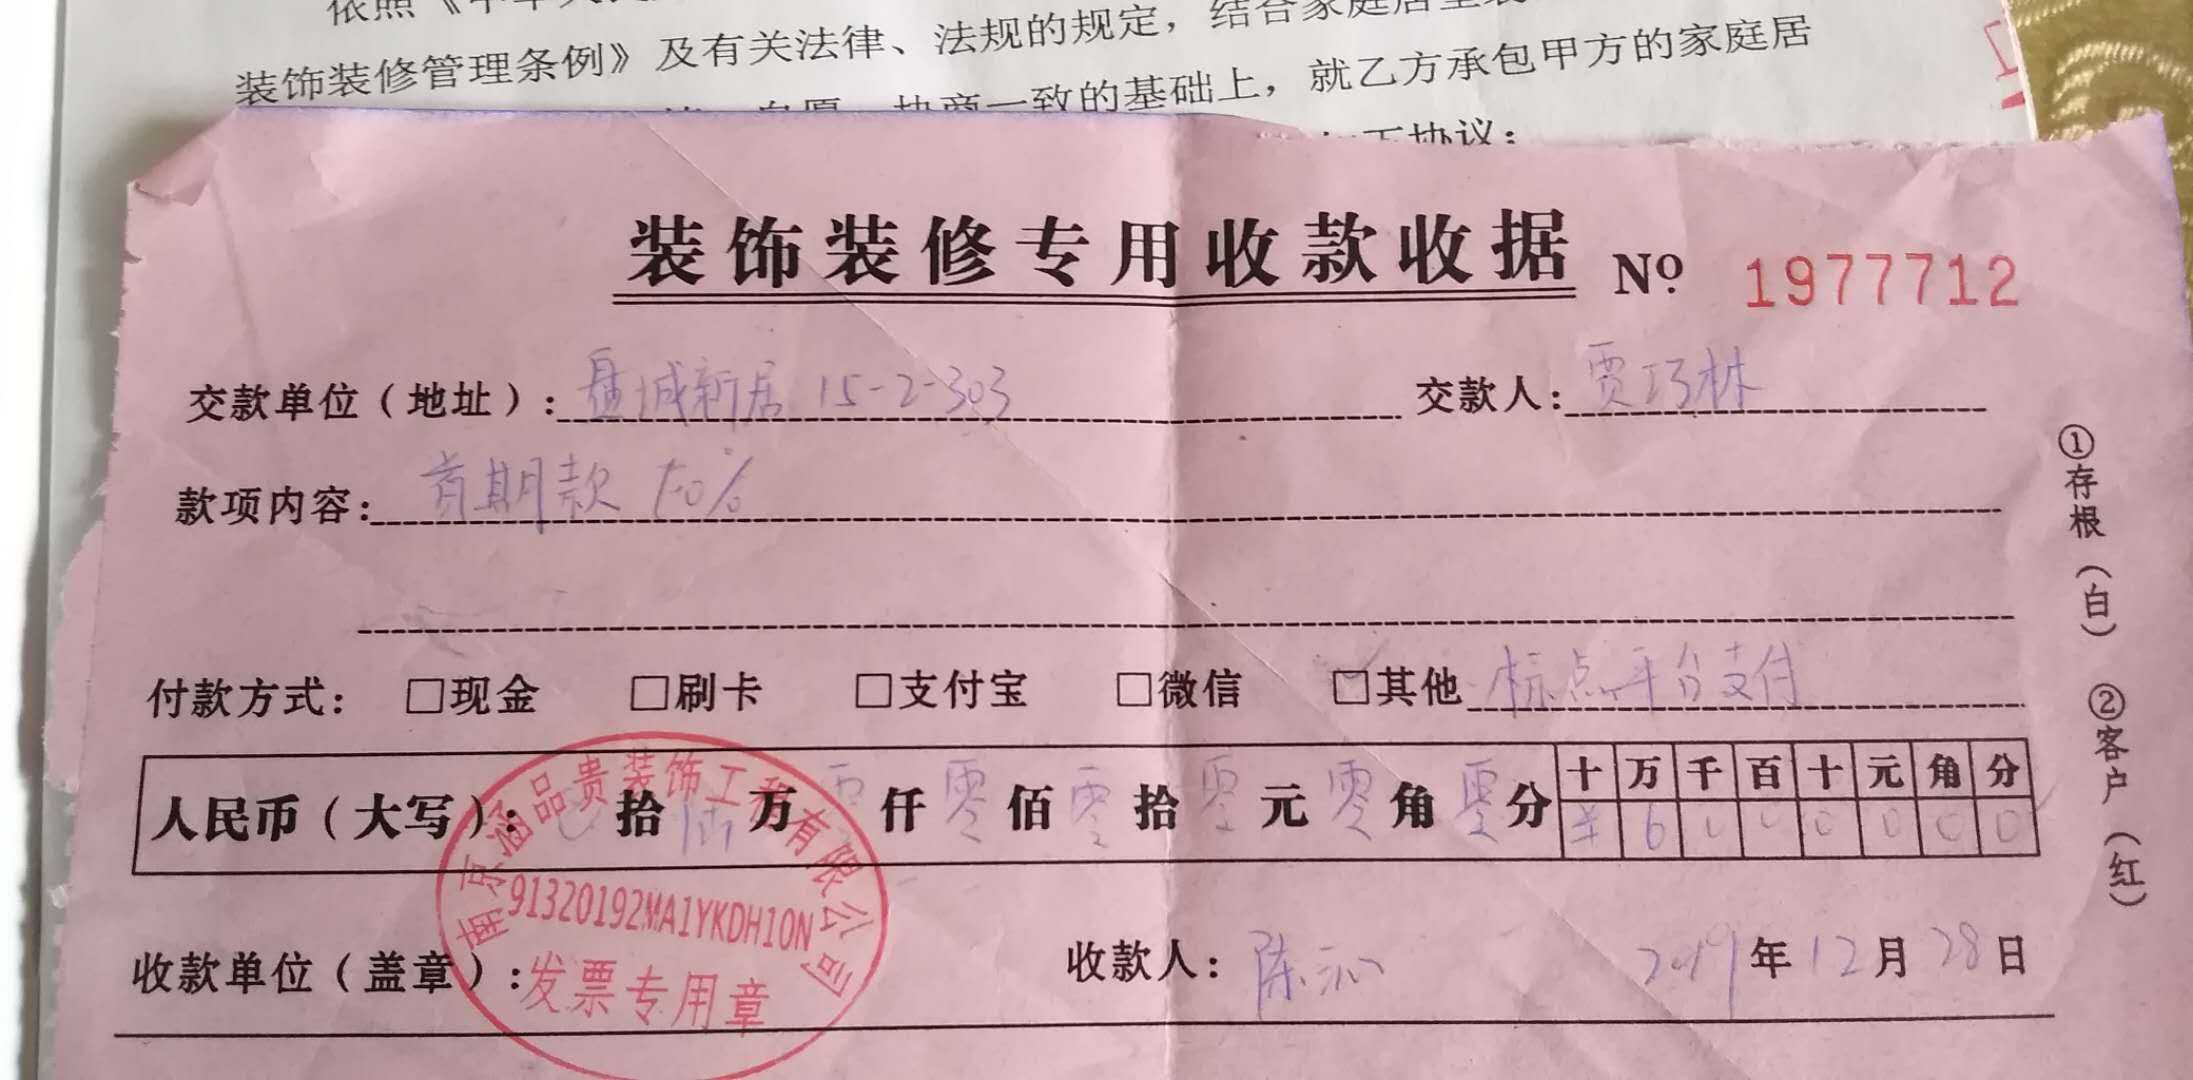 装饰装修管理条例》及有关法律、法规的规定，结合家庭居室装
协商一致的基础上，就乙方承包甲方的家庭居
下协议：
装饰装修专用收款收据 Nº 1977712
交款单位（地址）：盘城新居 15-2-303 交款人：贾巧林
款项内容：首期款 50%
付款方式： □现金 □刷卡 □支付宝 □微信 □其他 标点平台支付
十 万 千 百 十 元 角 分
人民币（大写）： 拾 陆 万 零 仟 零 佰 零 拾 零 元 零 角 零 分 ¥ 6 0 0 0 0 0 0
收款单位（盖章）： 收款人：陈 2019 年 12 月 28 日
南京涵品贵装饰工程有限公司
91320192MA1YKDH10N
发票专用章
①存根（白） ②客户（红）